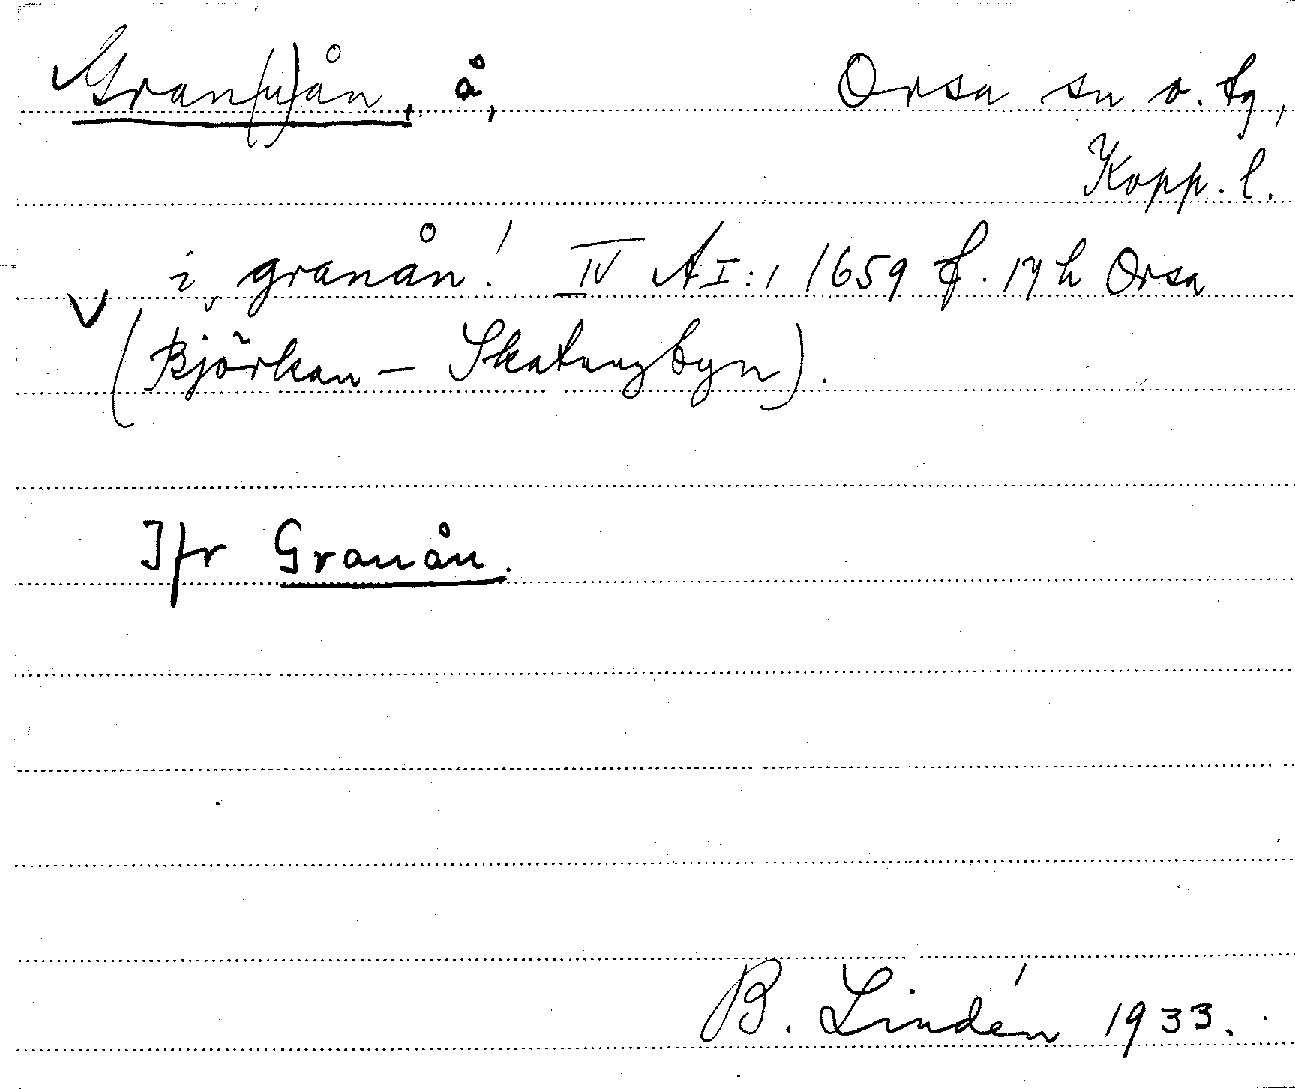 Gran(u)ån, å, Orsa sn o. tg,
Kopp. l.
i, granån! IV A I:1 1659 f. 17 h Orsa
(Björkan - Skatungbyn).
Jfr Granån.
B. Lindén 1933.